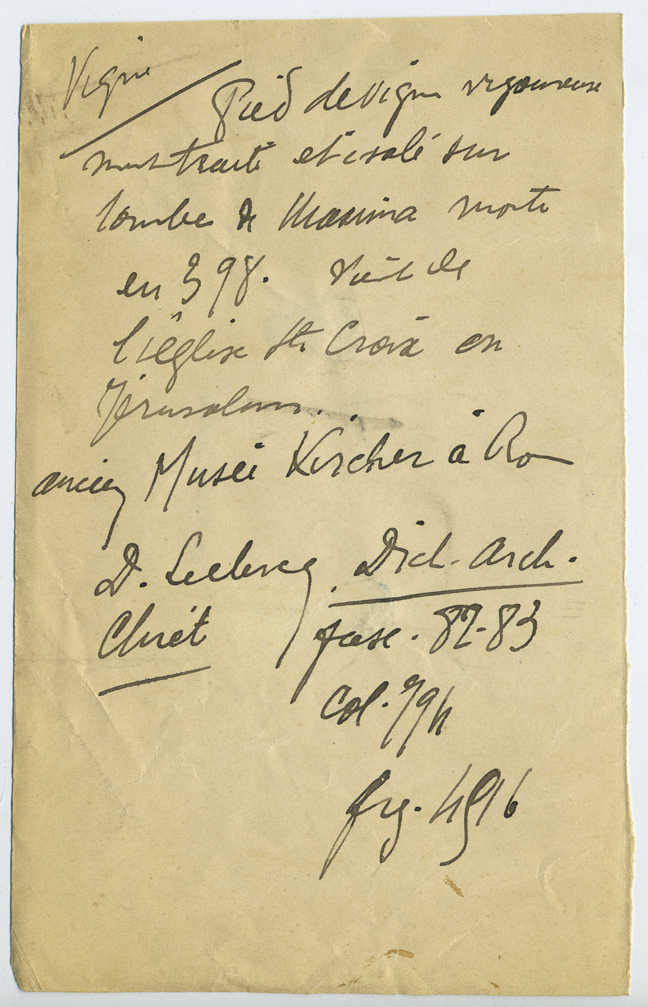 Vigne
Pied de vigne vigoureuse
traité et isolé sur
tombe de Maxima morte
en 398. Vient de
l'église Ste Croix en
Jérusalem.
ancien Musée Kircher à Ro
D. Leclercq, Dict. Arch.
Chrét fasc. 82-83
Col. 794
fig. 4916